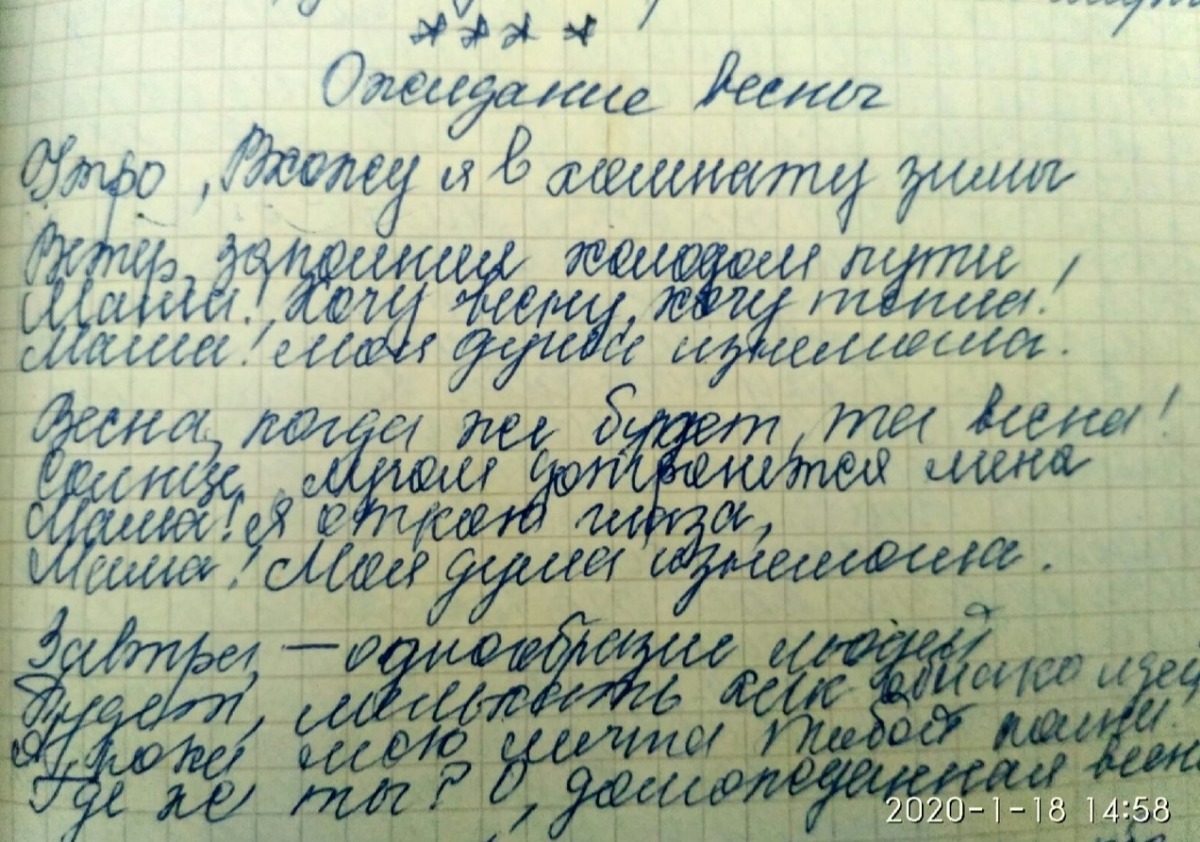 * * * *
Ожидание весны
Утро, Вхожу я в комнату зимы
Ветер, заполнил холодом пути,
Мама! Хочу весну, хочу тепла!
Мама! моя душа изнемогла.
Весна, когда же будет, та весна!
Солнце, лучом дотронется меня
Мама! я открою глаза,
Мама! Моя душа изнемогла.
Завтра, — однообразие людей
Будет, мелькать как облако идей
А, пока мою мечта тобой полны!
Где же ты? О, долгожданная весна
2020-1-18 14:58